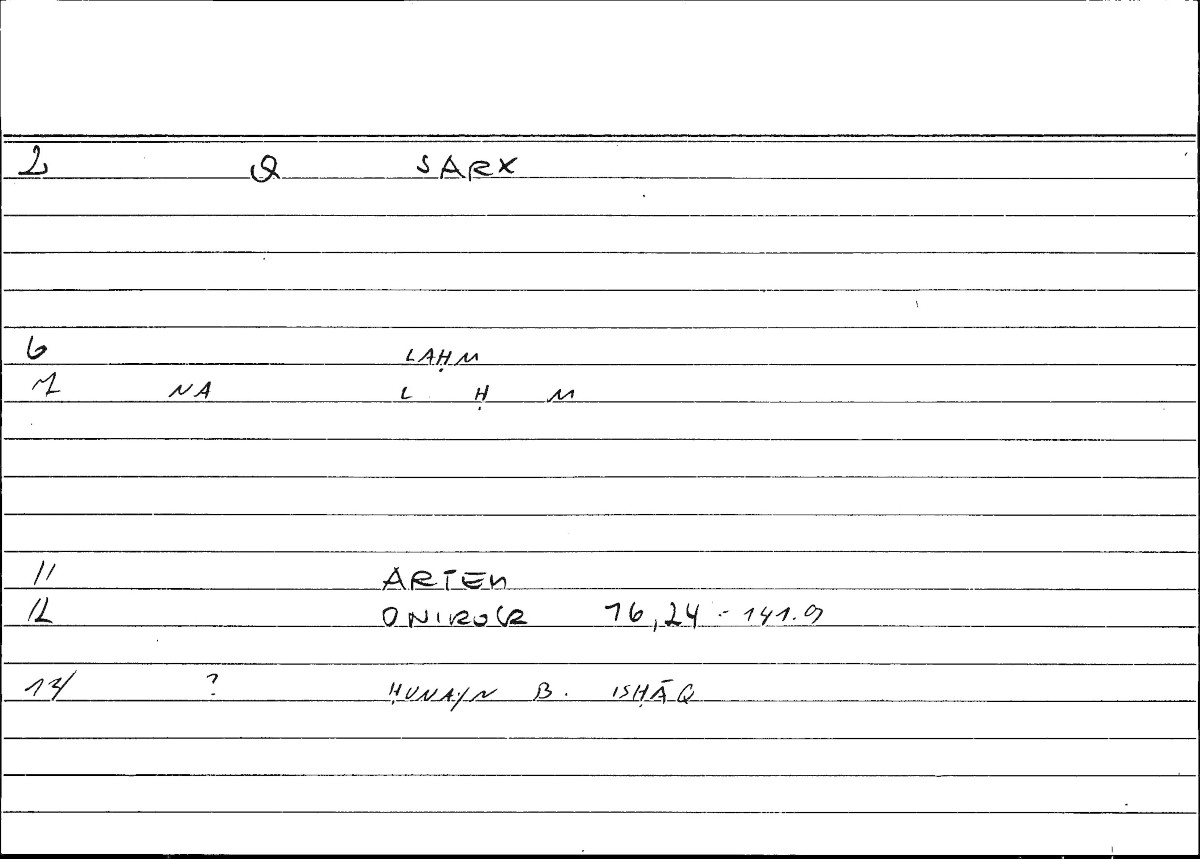 2 Q SARX
6 LAḤM
7 NA L Ḥ M
11 ARTEM
12 ONIROCR 76,24 - 141.9
13/ ? ḤUNAYN B. ISḤĀQ